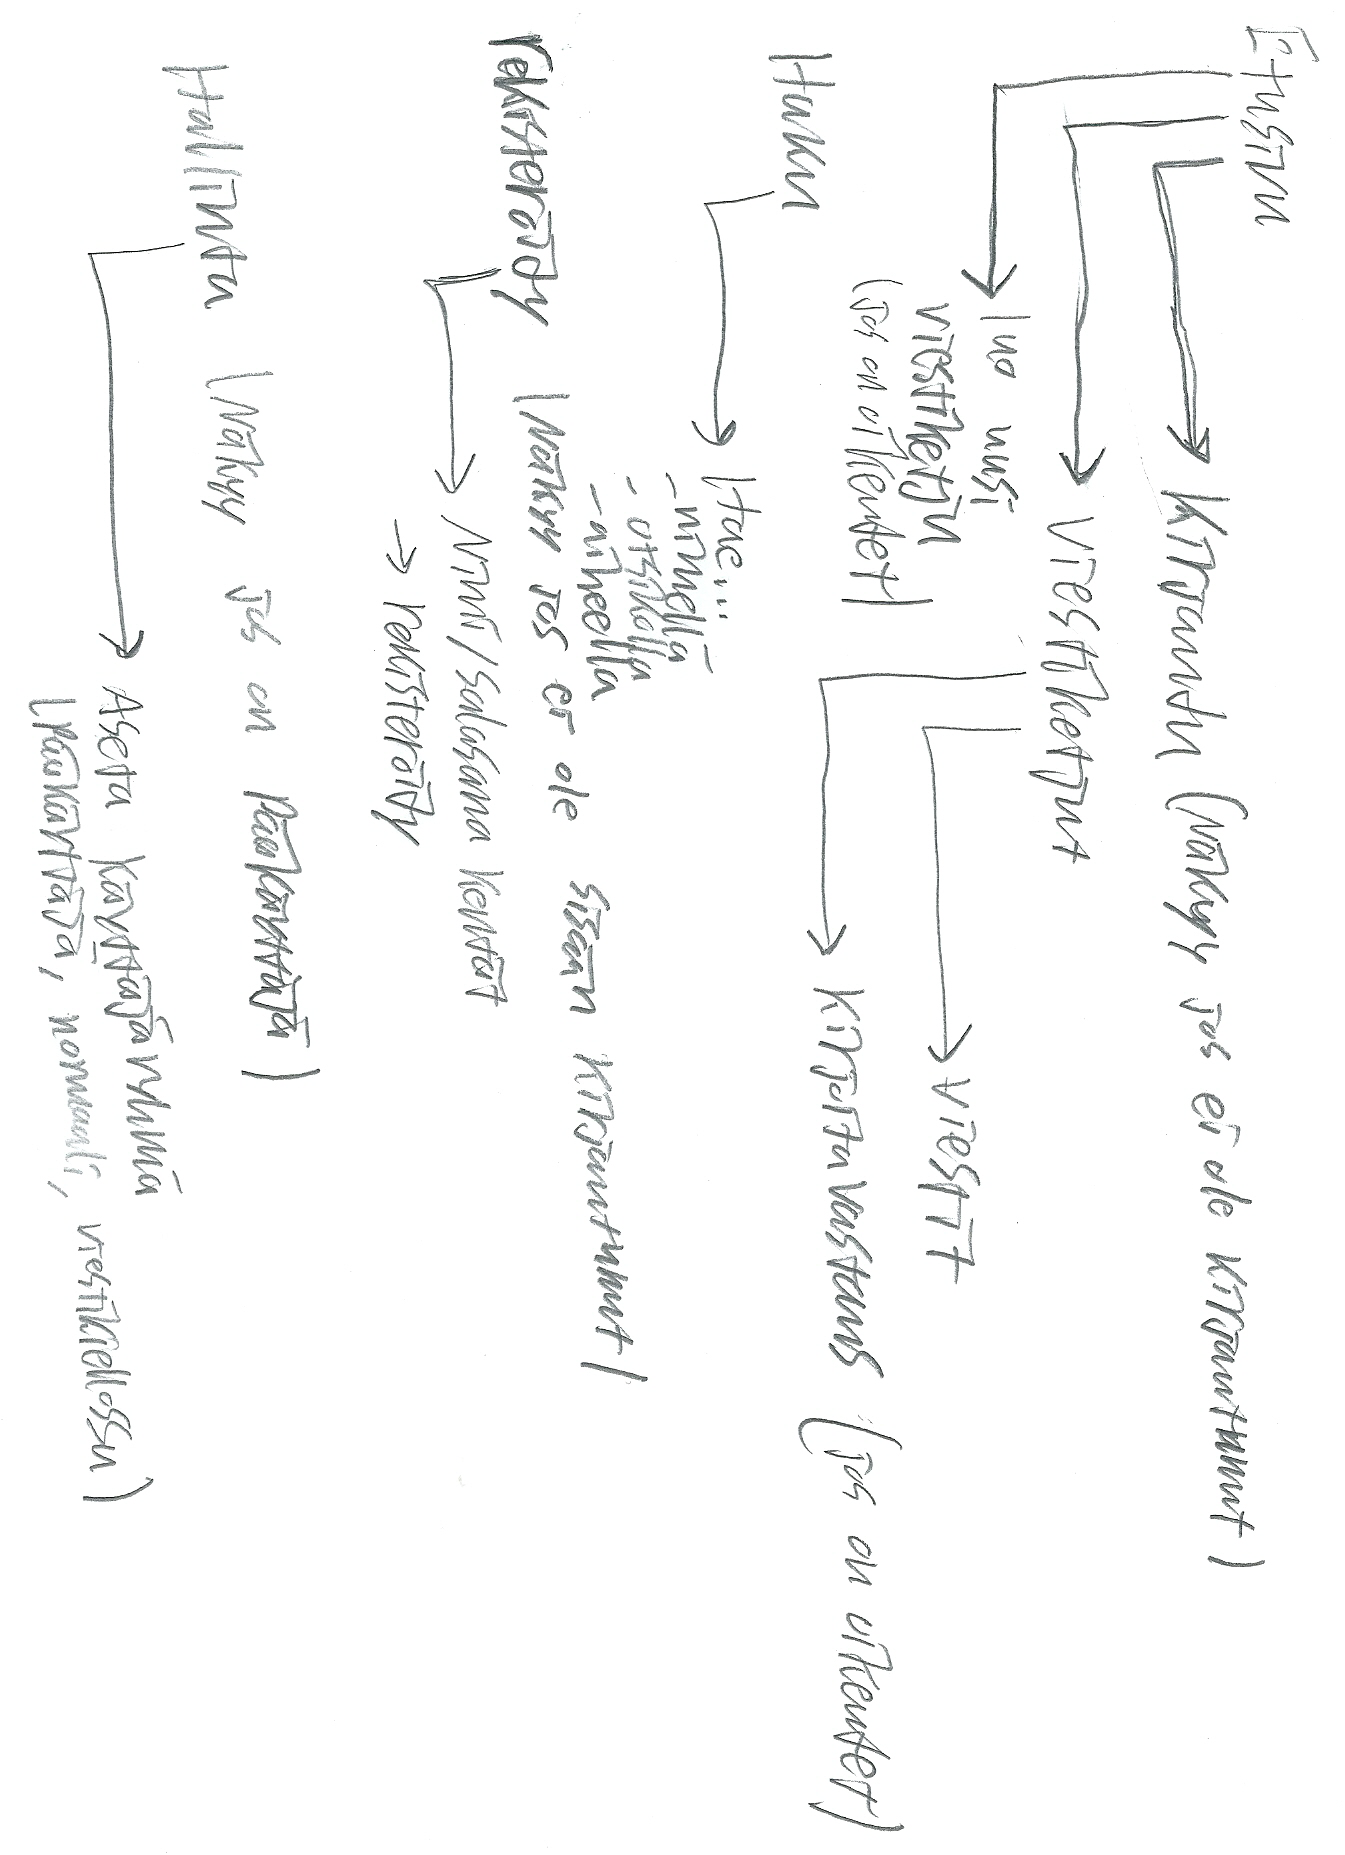 Etusivu
Kirjaudu (näkyy jos ei ole kirjautunut)
Viestiketjut
Viestit
Kirjoita vastaus (jos on oikeudet)
luo uusi
viestiketju
(jos on oikeudet)
Haku
Hae...
-nimellä-
-otsikolla
-aiheella
rekisteröidy (näkyy jos ei ole sisään kirjautunut)
Nimi/salasana kentät
→ rekisteröidy
Hallinta (näkyy jos on pääkäyttäjä)
Aseta käyttäjäryhmä
(pääkäyttäjä, normaali, viestikiellossa)